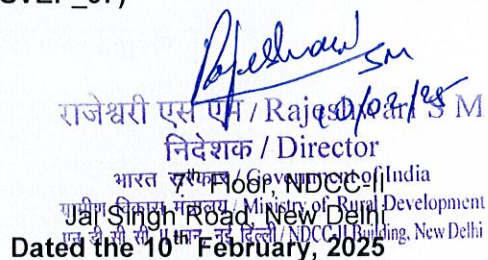 Rajeshwari SM
10/02/25
राजेश्वरी एस एम / Rajeshwari S M
निदेशक / Director
भारत सरकार / Government of India
7th Floor, NDCC-II
ग्रामीण विकास मंत्रालय / Ministry of Rural Development
Jai Singh Road, New Delhi
एन डी सी सी नई दिल्ली / NDCC-II Building, New Delhi
Dated the 10th February, 2025